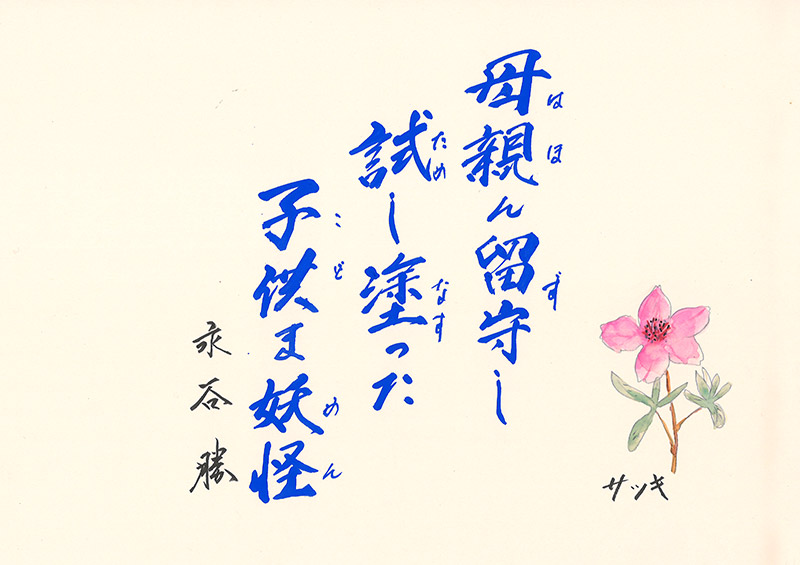 母親ん留守し
はほ ず
試し塗った
ため なす
子供ま妖怪
こど めん
永谷勝
サツキ